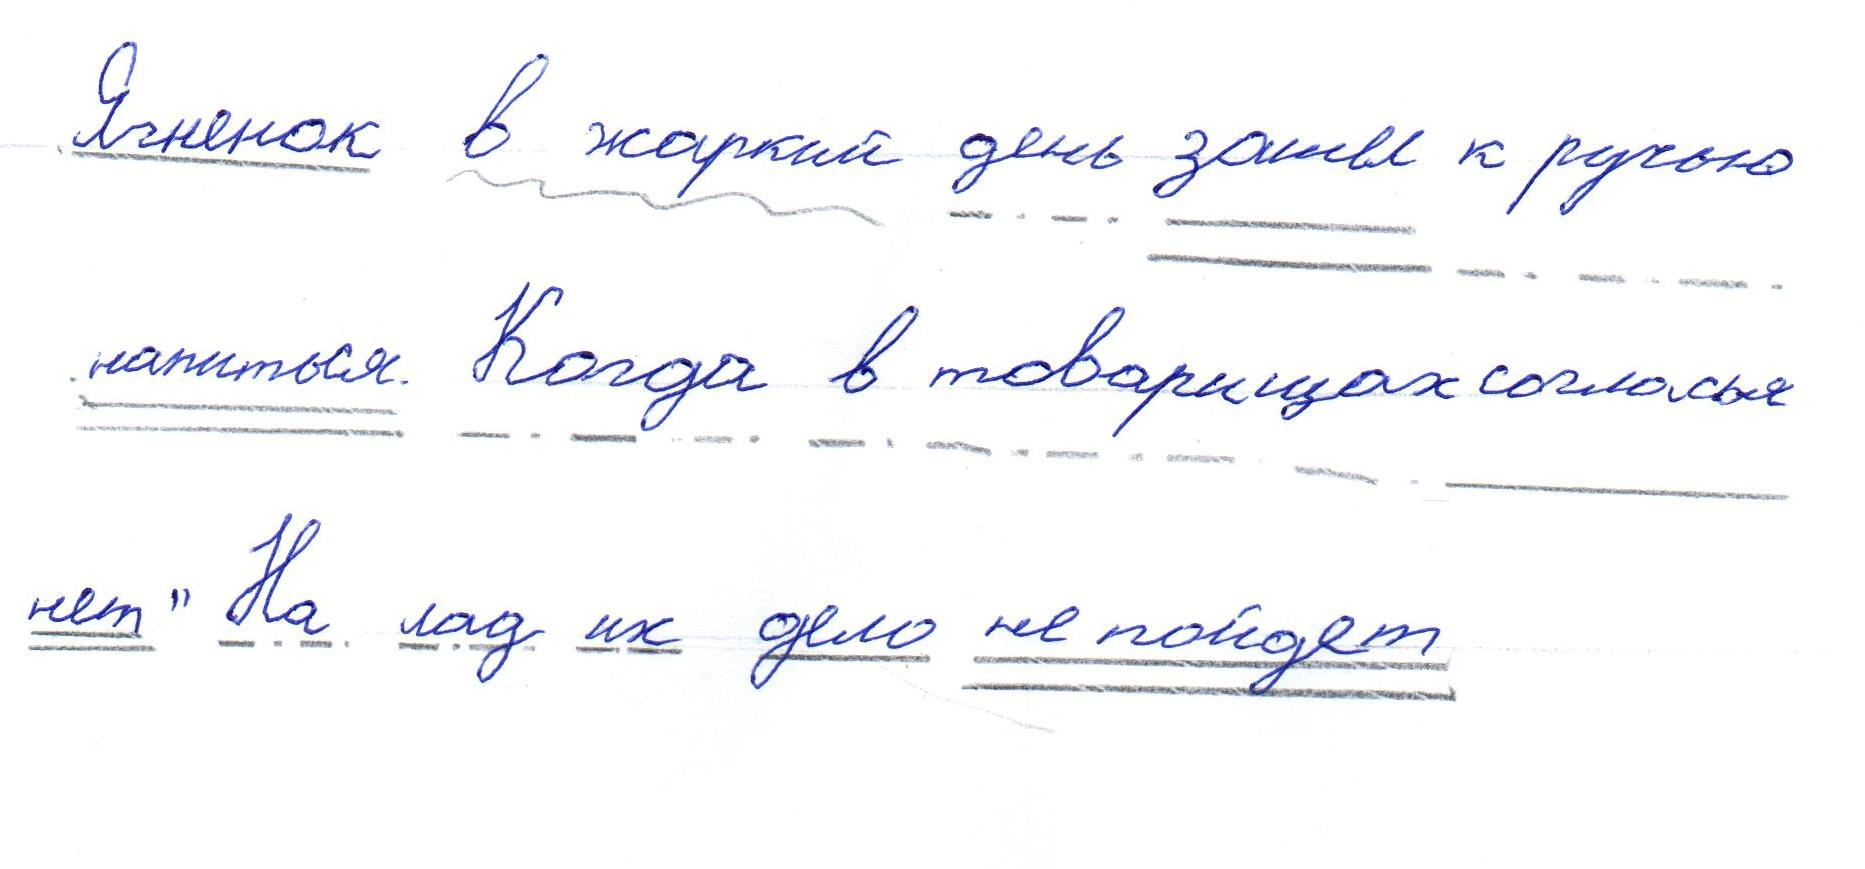 Ягненок в жаркий день зашел к ручью
напиться. Когда в товарищах согласья
нет" На лад их дело не пойдет